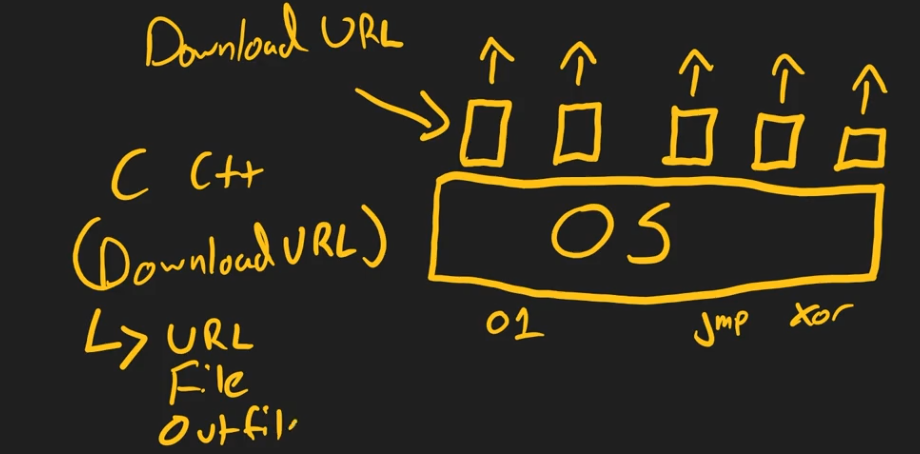 Download URL
C C++
(Download URL)
URL
File
Outfil
OS
01
jmp xor